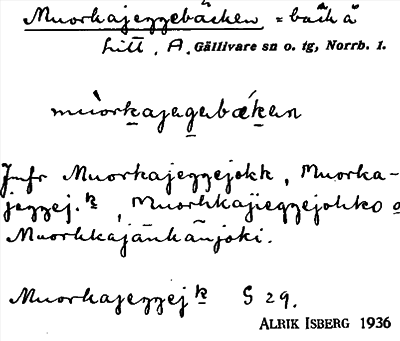 Muorkajeggebäcken = bäck å
Litt. A. Gällivare sn o. tg, Norrb. 1.
mùorkajegabækən
Jmfr Muorkajeggejokk, Muorka-
jeggej.k, Muorkkajieggejohko o
Muorkkajänkänjoki.
Muorkajeggejk S 29.
ALRIK ISBERG 1936